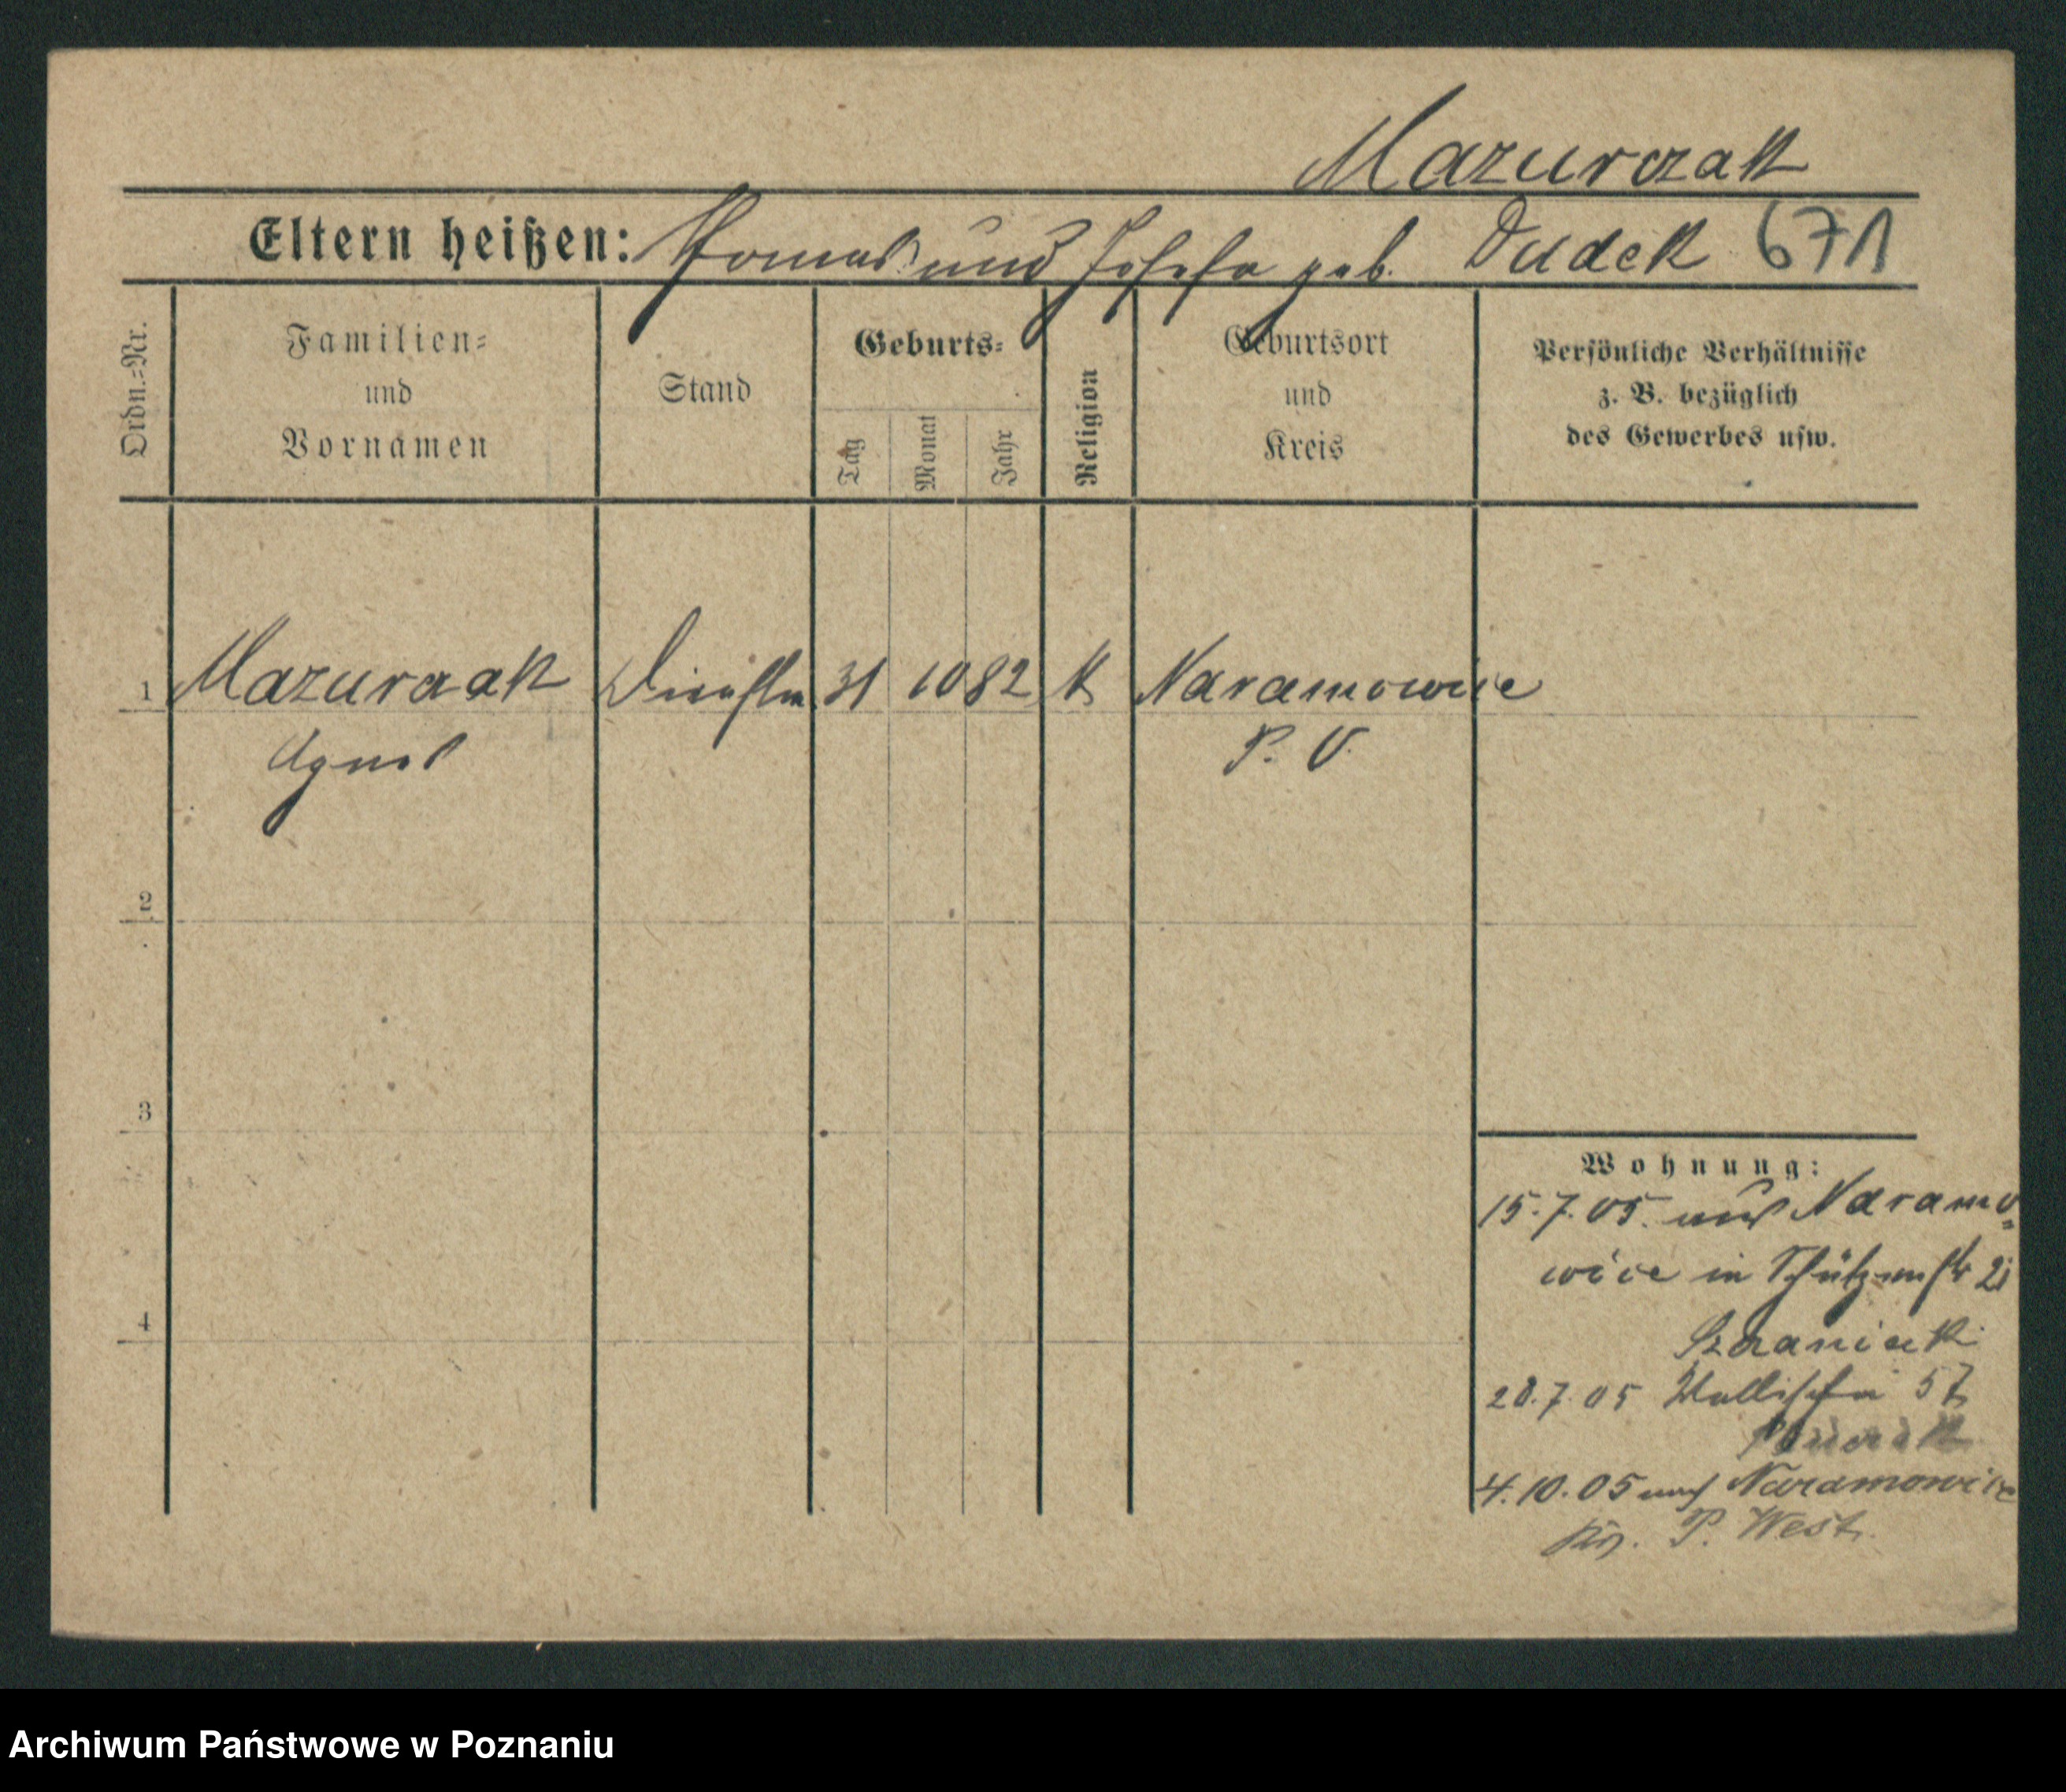 Mazurczak
Eltern heißen: Thomas und Josefa geb. Dudek 671
Ordn.-Nr.
Familien-
und
Vornamen
Stand
Geburts-
Tag
Monat
Jahr
Religion
Geburtsort
und
Kreis
Persönliche Verhältnisse
z. B. bezüglich
des Gewerbes usw.
1 Mazurczak Dienstm 31 10 82 K Naramowice
Agnes P. O.
2
3
4
Wohnung:
15.7.05. aus Naramo-
wice in Schützenstr 21
20.7.05 Wallischei 57
4.10.05 nach Naramowice
P. West.
Archiwum Państwowe w Poznaniu